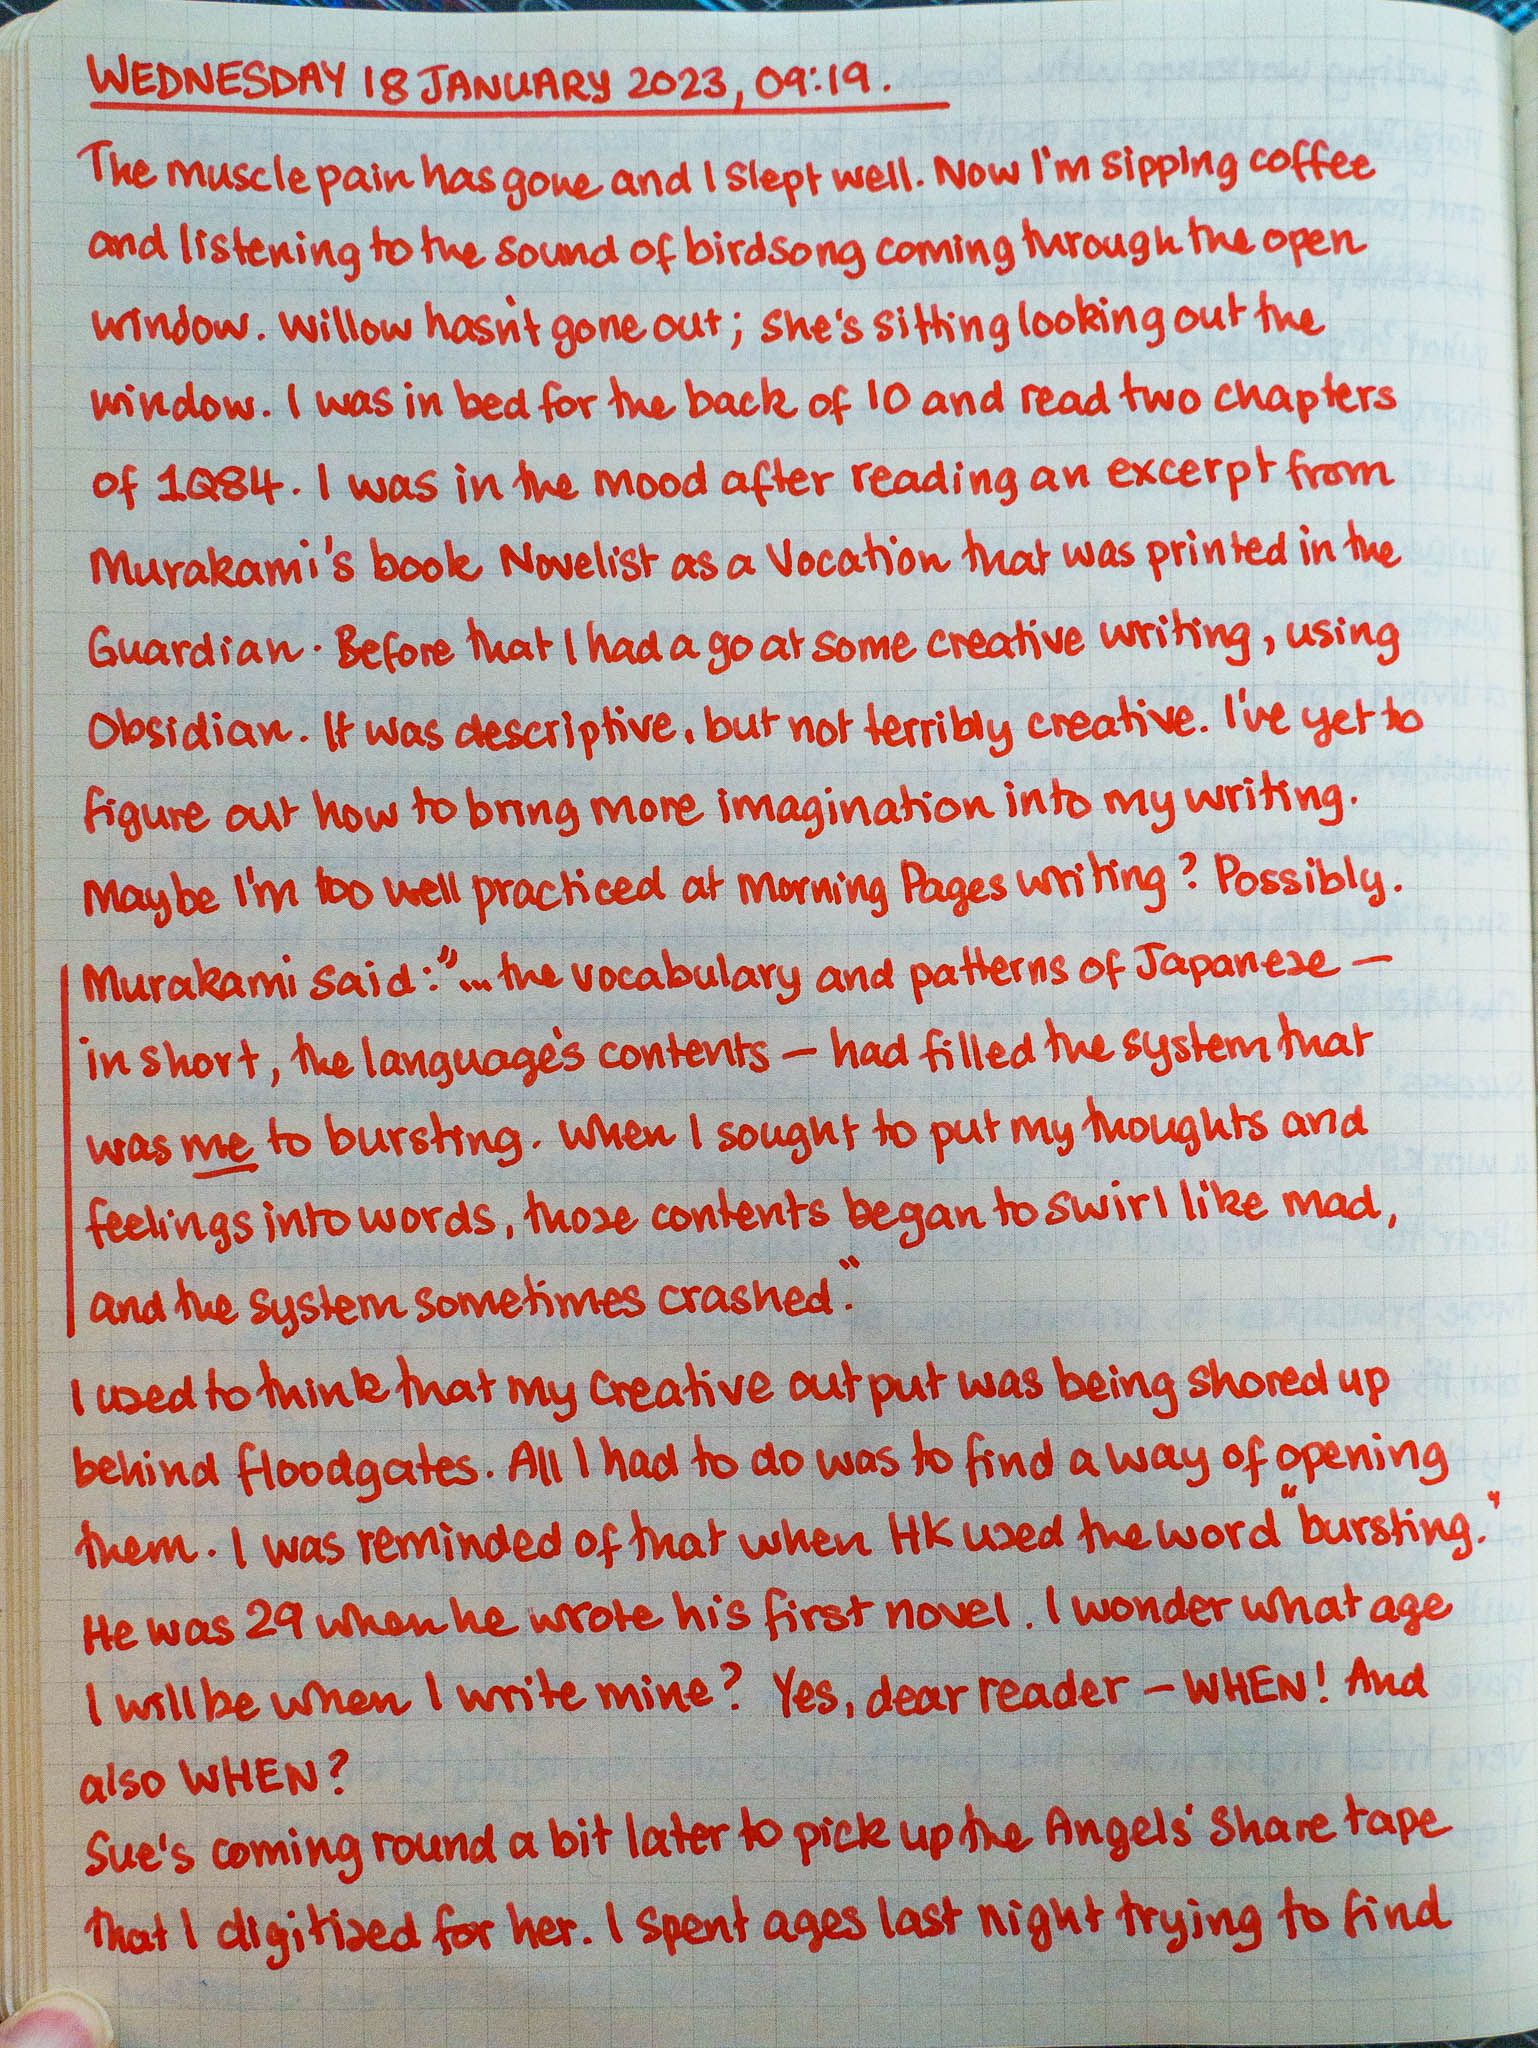 WEDNESDAY 18 JANUARY 2023, 09:19.
The muscle pain has gone and I slept well. Now I'm sipping coffee
and listening to the sound of birdsong coming through the open
window. Willow hasn't gone out; she's sitting looking out the
window. I was in bed for the back of 10 and read two chapters
of 1Q84. I was in the mood after reading an excerpt from
Murakami's book Novelist as a Vocation that was printed in the
Guardian. Before that I had a go at some creative writing, using
Obsidian. It was descriptive, but not terribly creative. I've yet to
figure out how to bring more imagination into my writing.
Maybe I'm too well practiced at Morning Pages writing? Possibly.
Murakami said: "... the vocabulary and patterns of Japanese —
in short, the language's contents — had filled the system that
was me to bursting. When I sought to put my thoughts and
feelings into words, those contents began to swirl like mad,
and the system sometimes crashed."
I used to think that my creative output was being shored up
behind floodgates. All I had to do was to find a way of opening
them. I was reminded of that when HK used the word "bursting."
He was 29 when he wrote his first novel. I wonder what age
I will be when I write mine? Yes, dear reader — WHEN! And
also WHEN?
Sue's coming round a bit later to pick up the Angels' Share tape
that I digitised for her. I spent ages last night trying to find